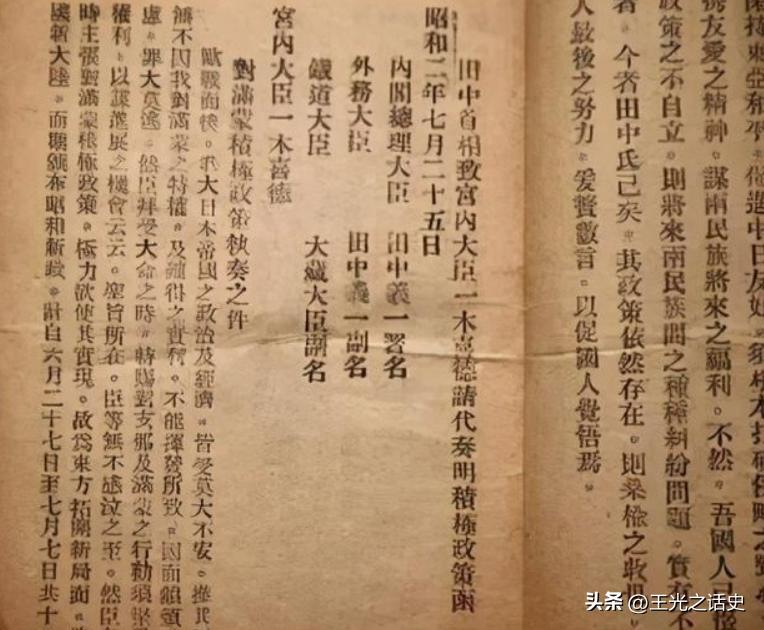 携友愛之精神。謀兩民族將來之福利。不然。吾國人已
政策之不自立。則將來兩民族間之種種糾紛問題。實有不
者。今者田中氏已矣。其政策依然存在。則桑榆之收
人最後之努力。爰贅數言。以促國人覺悟焉。
田中首相致宮內大臣一木喜德請代奏明積極政策函
昭和二年七月二十五日
內閣總理大臣 田中義一署名
外務大臣 田中義一副名
鐵道大臣 大藏大臣副名
宮內大臣一木喜德
對滿蒙積極政策執奏之件
歐戰而後。我大日本帝國之政治及經濟。皆受莫大不安。推其
無不因我對滿蒙之特權。及確得之實利。不能揮發所致。因而頗煩
慮。罪大莫逃。然臣拜受大命之時。特賜對支那及滿蒙之行動須堅
權利。以謀進展之機會云云。聖旨所在。臣等無不感泣之至。然臣
時主張對滿蒙積極政策。極力欲使其實現。故爲東方拓開新局面
國新大陸。而期頒布昭和新政。計自六月二十七日至七月七日共十
头条 @王光之话史